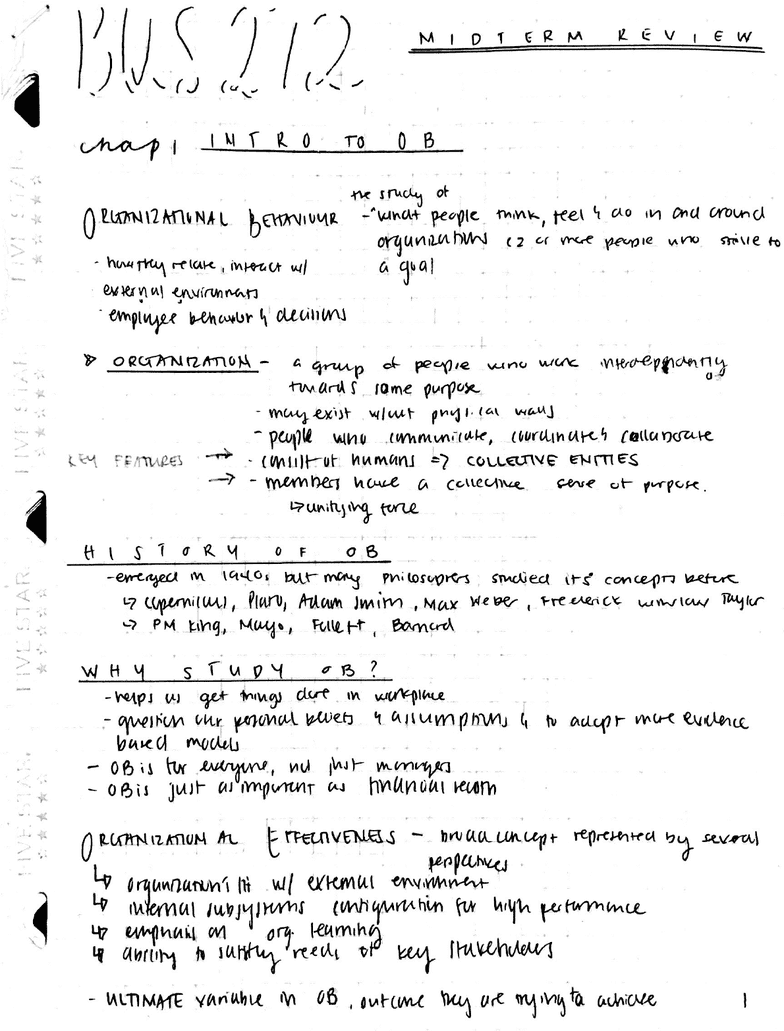 BUS 272
MIDTERM REVIEW
chap 1 INTRO TO OB
ORGANIZATIONAL BEHAVIOUR - the study of what people think, feel & do in and around
organizations (2 or more people who strive to
a goal
- how they relate, interact w/
external environments
- employee behavior & decisions
ORGANIZATION - a group of people who work interdependantly
towards some purpose
- may exist w/out physical walls
- people who communicate, coordinate & collaborate
KEY FEATURES → - consist of humans => COLLECTIVE ENTITIES
→ - members have a collective sense of purpose.
↳ unifying force
HISTORY OF OB
- emerged in 1940s but many philosophers studied its concepts before
↳ Copernicus, Plato, Adam Smith, Max Weber, Frederick Winslow Taylor
↳ PM King, Mayo, Follett, Barnard
WHY STUDY OB?
- helps us get things done in workplace
- question our personal beliefs & assumptions & to adopt more evidence
based models
- OB is for everyone, not just managers
- OB is just as important as financial
ORGANIZATIONAL EFFECTIVENESS - broad concept represented by several
perspectives
↳ organization's fit w/ external environment
↳ internal subsystems configuration for high performance
↳ emphasis on org. learning
↳ ability to satisfy needs of key stakeholders
- ULTIMATE variable in OB, outcome they are trying to achieve
1
FIVE STAR
FIVE STAR
FIVE STAR
FIVE STAR